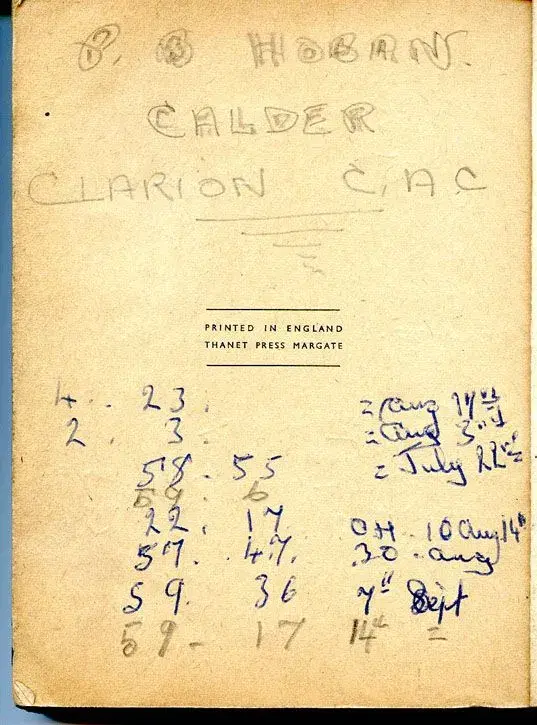 P. B HOBAN.
CALDER
CLARION C.A.C
PRINTED IN ENGLAND
THANET PRESS MARGATE
4. 23. = Aug 17th
2. 3. = Aug 3rd
58. 55 = July 22nd
59. 6
22. 17 OH. 10 Aug 14th
57. 47. 30. Aug
59. 36 7th Sept
59 - 17 14th =